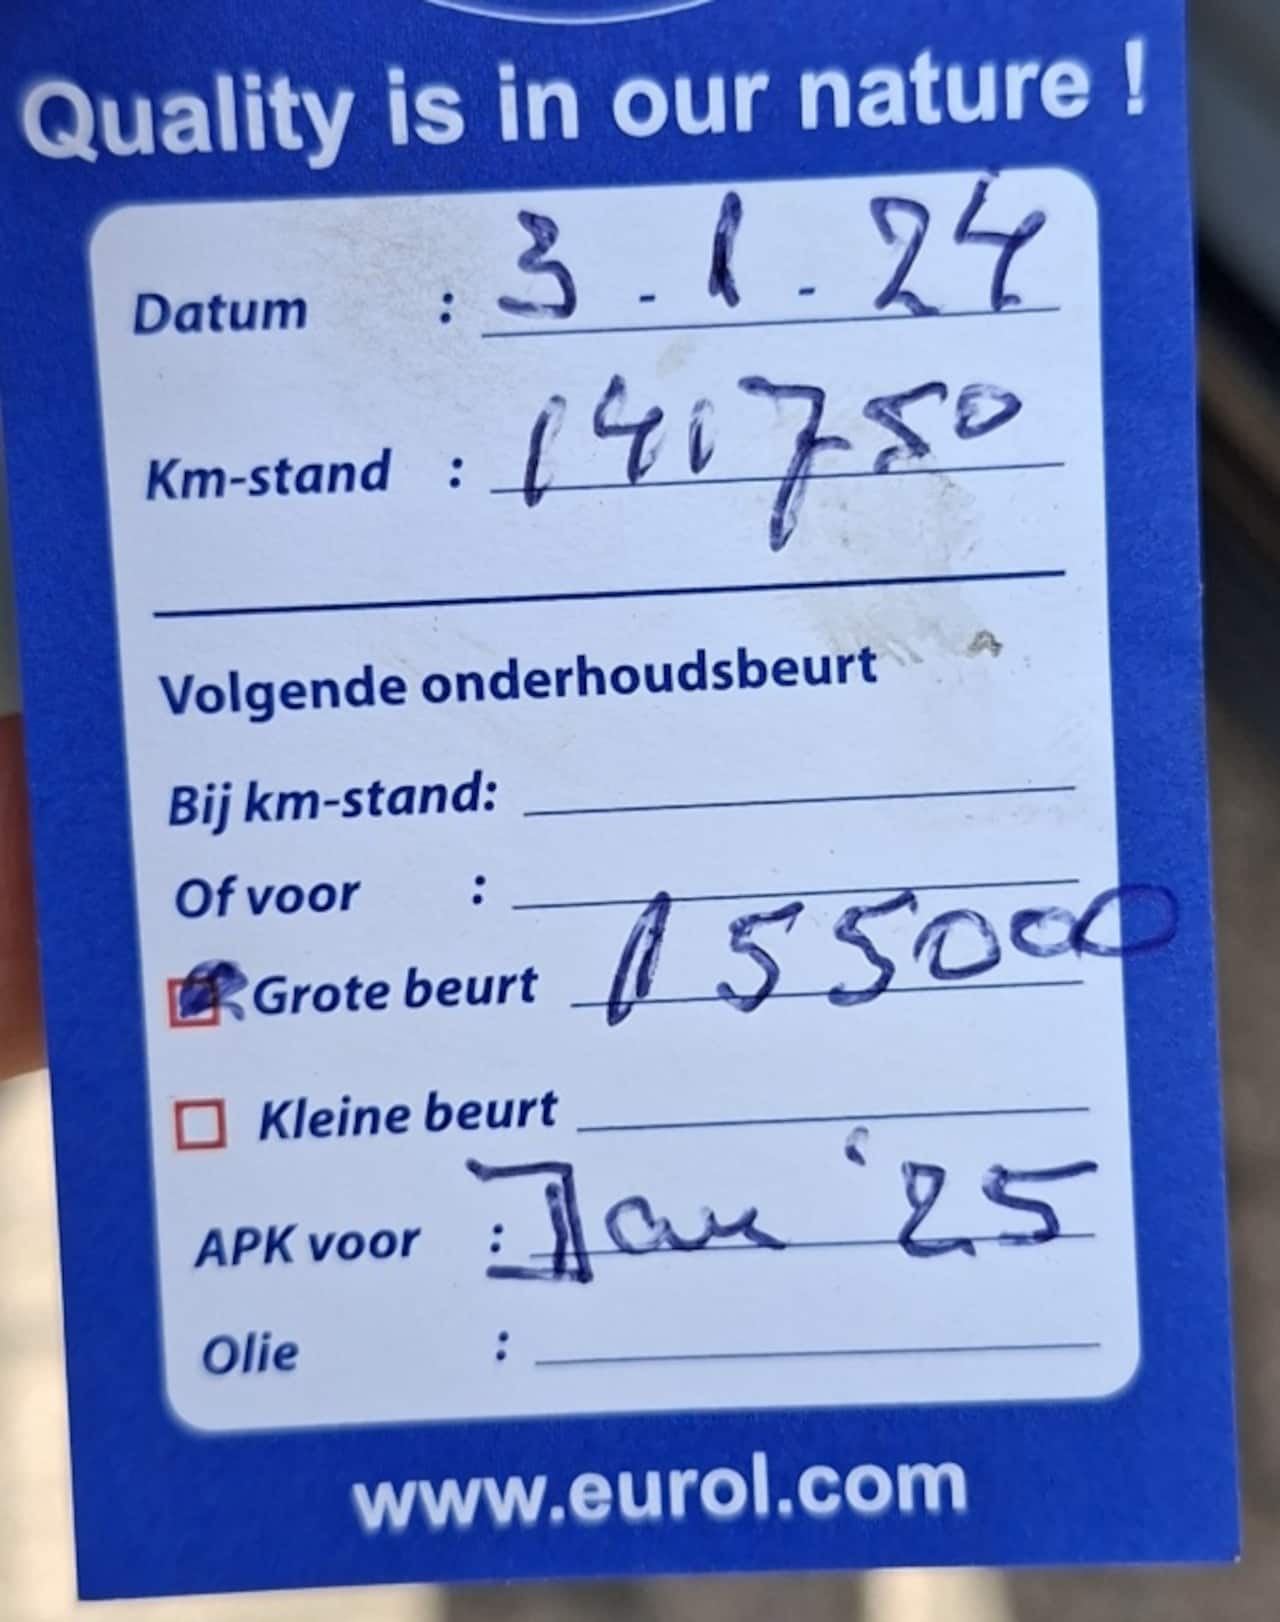 Quality is in our nature !
Datum : 3-1-24
Km-stand : 141750
Volgende onderhoudsbeurt
Bij km-stand:
Of voor :
Grote beurt 155000
Kleine beurt
APK voor : Jan '25
Olie :
www.eurol.com